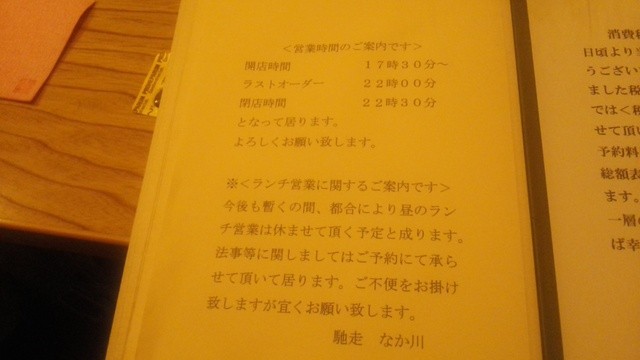 ＜営業時間のご案内です＞
開店時間 １７時３０分～
ラストオーダー ２２時００分
閉店時間 ２２時３０分
となって居ります。
よろしくお願い致します。
※＜ランチ営業に関するご案内です＞
今後も暫くの間、都合により昼のラン
チ営業は休ませて頂く予定と成ります。
法事等に関しましてはご予約にて承ら
せて頂いて居ります。ご不便をお掛け
致しますが宜くお願い致します。
馳走 なか川
消費税
日頃より
うござい
ました税
では＜税
せて頂い
予約料
総額表
ます。
一層の
ば幸